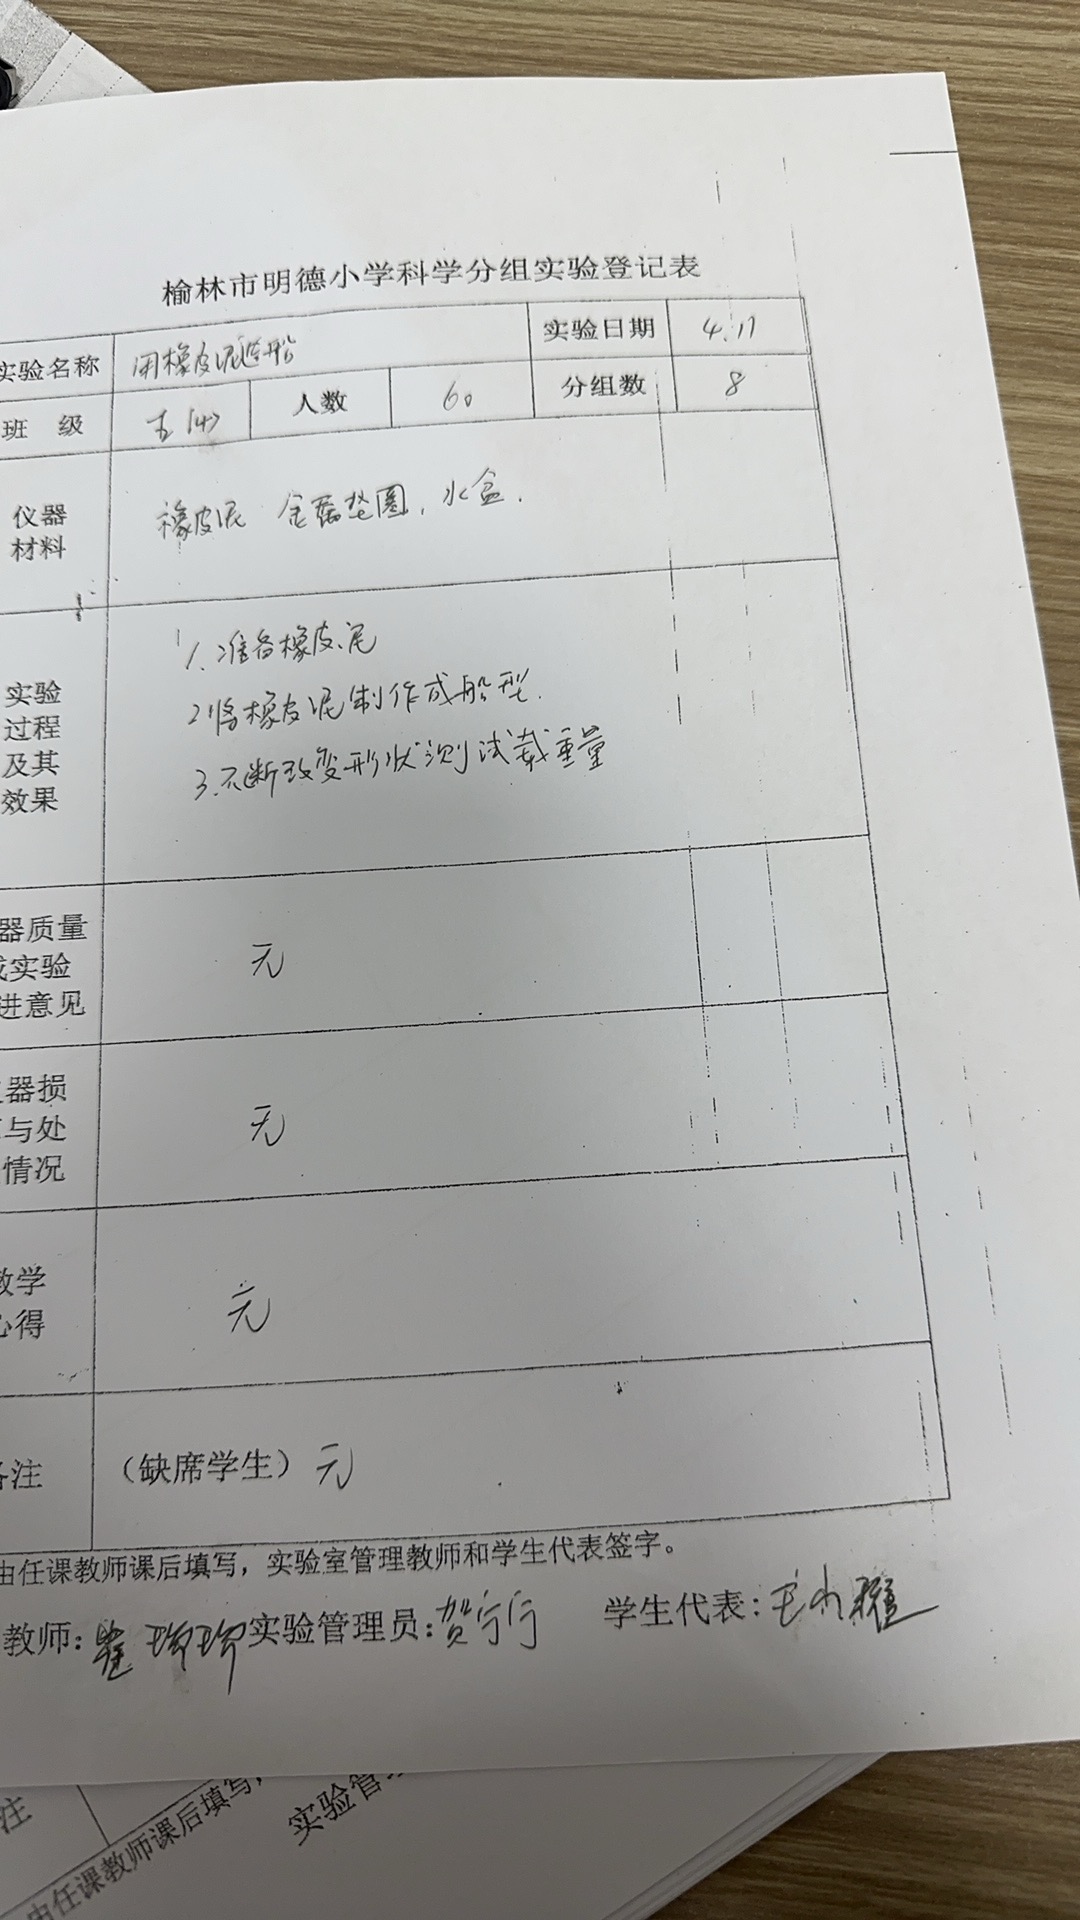 榆林市明德小学科学分组实验登记表
实验名称 用橡皮泥造船 实验日期 4.17
班 级 五(4) 人数 60 分组数 8
仪器
材料
橡皮泥 金属垫圈，水盒．
实验
过程
及其
效果
1.准备橡皮泥
2.将橡皮泥制作成船型．
3.不断改变形状测试载重量
器质量
或实验
进意见
无
器损
与处
情况
无
教学
心得
无
备注 （缺席学生）无
由任课教师课后填写，实验室管理教师和学生代表签字。
教师: 实验管理员:贺宁宁 学生代表:
注
由任课教师课后填写，
实验管